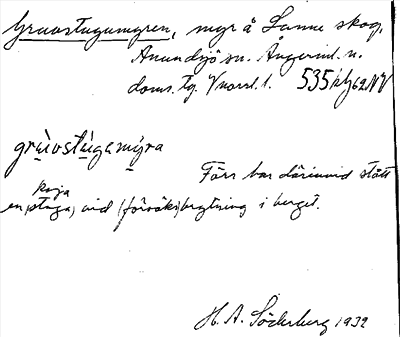 Gruvstugumyren, myr å Lanne skog,
Anundsjö sn. Ångerml. n.
doms. tg. Vnorrl. l. 535 62 NV
grùvostùgamýra
Förr har därinvid stått
koja
en stuga, vid (försöks)brytning i berget.
H. A. Söderberg 1932